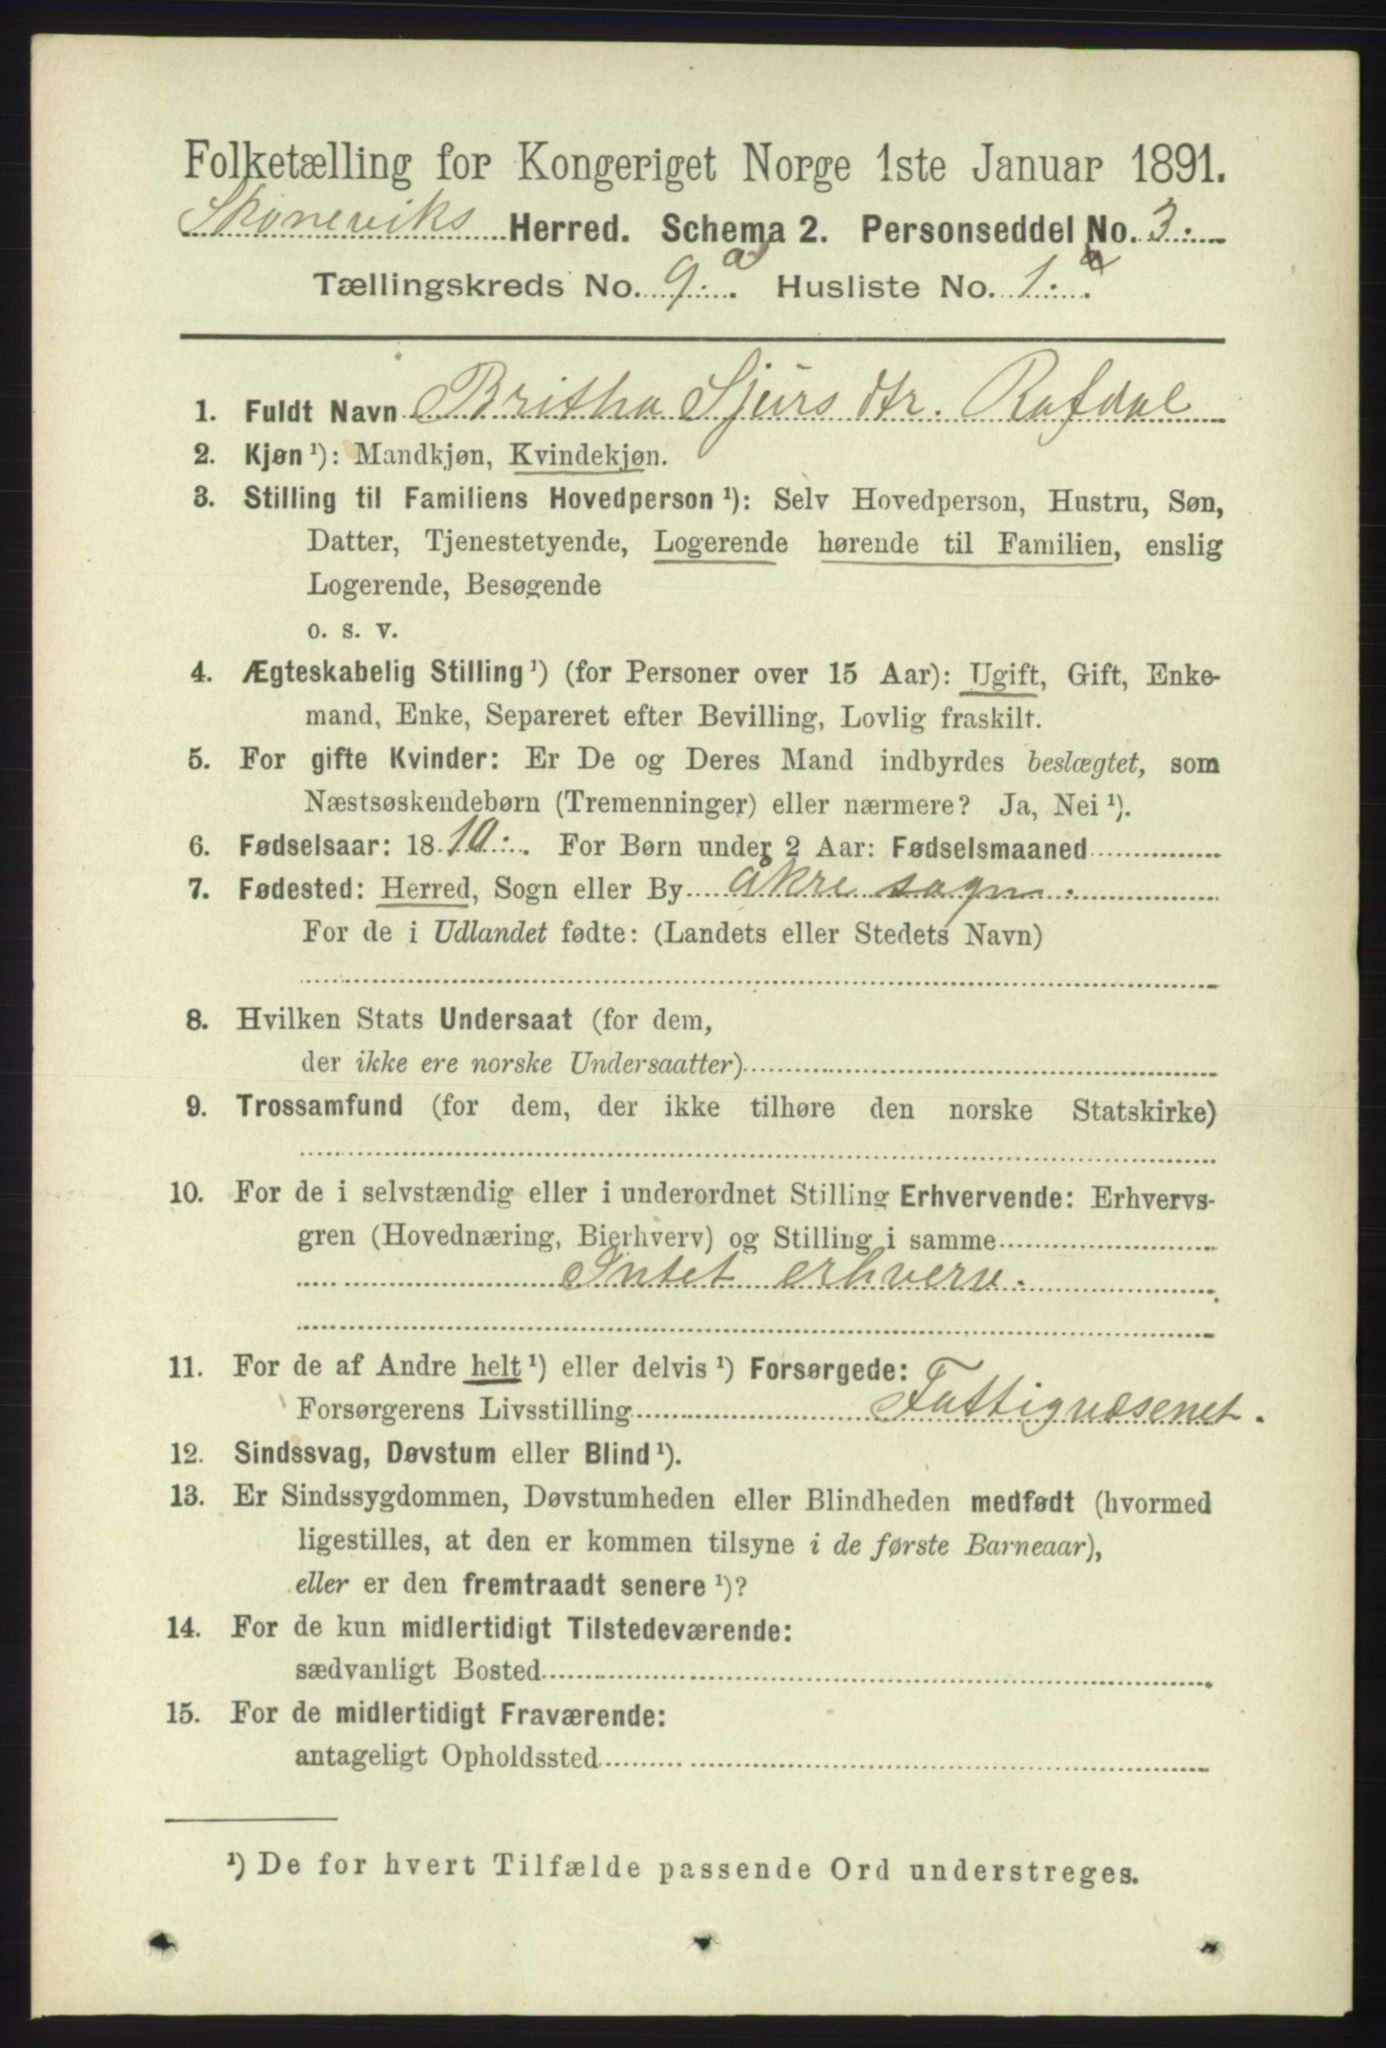 Folketælling for Kongeriget Norge 1ste Januar 1891.
Skoneviks Herred. Schema 2. Personseddel No. 3.
Tællingskreds No. 9. a Husliste No. 1. a
1. Fuldt Navn Britha Sjurs dtr. Rafdal
2. Kjøn ¹): Mandkjøn, Kvindekjøn.
3. Stilling til Familiens Hovedperson ¹): Selv Hovedperson, Hustru, Søn,
Datter, Tjenestetyende, Logerende hørende til Familien, enslig
Logerende, Besøgende
o. s. v.
4. Ægteskabelig Stilling ¹) (for Personer over 15 Aar): Ugift, Gift, Enke-
mand, Enke, Separeret efter Bevilling, Lovlig fraskilt.
5. For gifte Kvinder: Er De og Deres Mand indbyrdes beslægtet, som
Næstsøskendebørn (Tremenninger) eller nærmere? Ja, Nei ¹).
6. Fødselsaar: 1810. For Børn under 2 Aar: Fødselsmaaned
7. Fødested: Herred, Sogn eller By åkre sogn.
For de i Udlandet fødte: (Landets eller Stedets Navn)
8. Hvilken Stats Undersaat (for dem,
der ikke ere norske Undersaatter)
9. Trossamfund (for dem, der ikke tilhøre den norske Statskirke)
10. For de i selvstændig eller i underordnet Stilling Erhvervende: Erhvervs-
gren (Hovednæring, Bierhverv) og Stilling i samme
Intet erhverv.
11. For de af Andre helt ¹) eller delvis ¹) Forsørgede:
Forsørgerens Livsstilling Fattigvæsenet.
12. Sindssvag, Døvstum eller Blind ¹).
13. Er Sindssygdommen, Døvstumheden eller Blindheden medfødt (hvormed
ligestilles, at den er kommen tilsyne i de første Barneaar),
eller er den fremtraadt senere ¹)?
14. For de kun midlertidigt Tilstedeværende:
sædvanligt Bosted
15. For de midlertidigt Fraværende:
antageligt Opholdssted
¹) De for hvert Tilfælde passende Ord understreges.